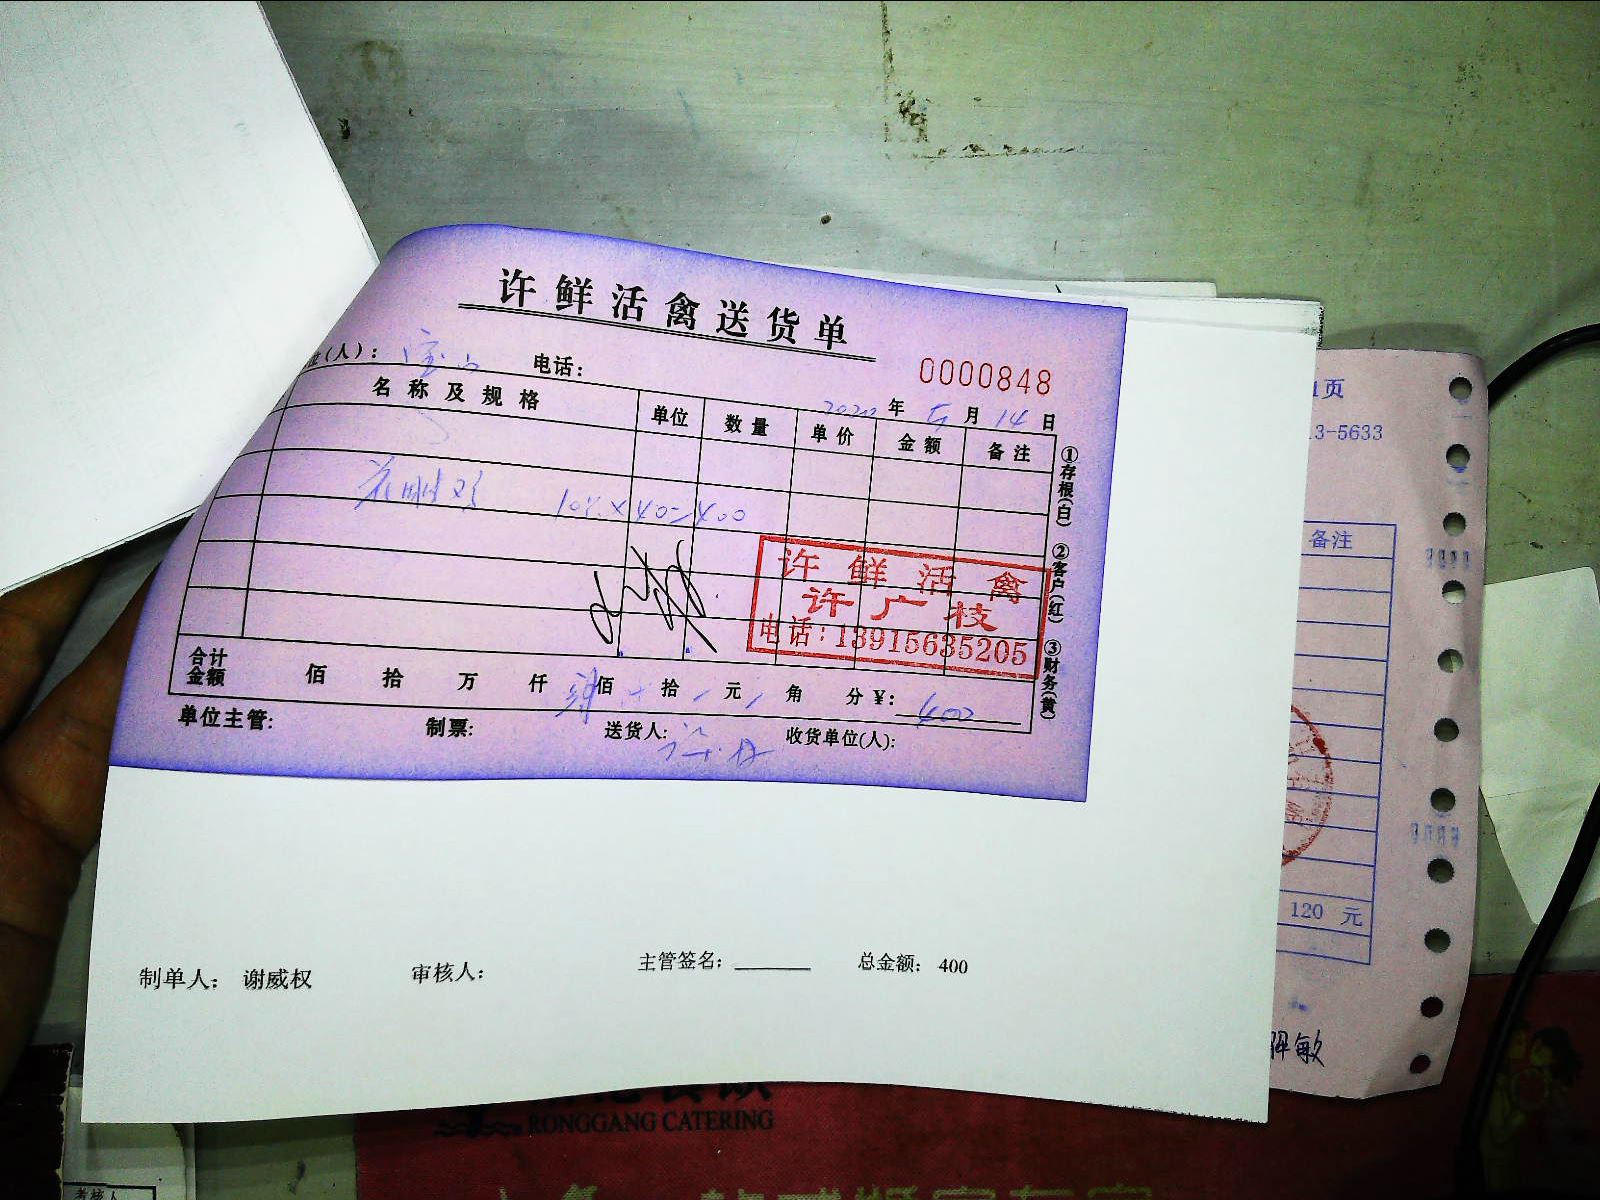 许鲜活禽送货单
0000848
(人): 宝山 电话:
2020 年 5 月 14 日
名称及规格 单位 数量 单价 金额 备注
10斤×40=400
①存根(白) ②客户(红) ③财务(黄)
许鲜活禽
许广枝
电话:13915635205
合计金额 佰 拾 万 仟 肆佰 拾 元 角 分 ¥: 400
单位主管: 制票: 送货人: 收货单位(人):
制单人: 谢威权 审核人: 主管签名: 总金额: 400
1页
13-5633
备注
120 元
敏
RONGGANG CATERING